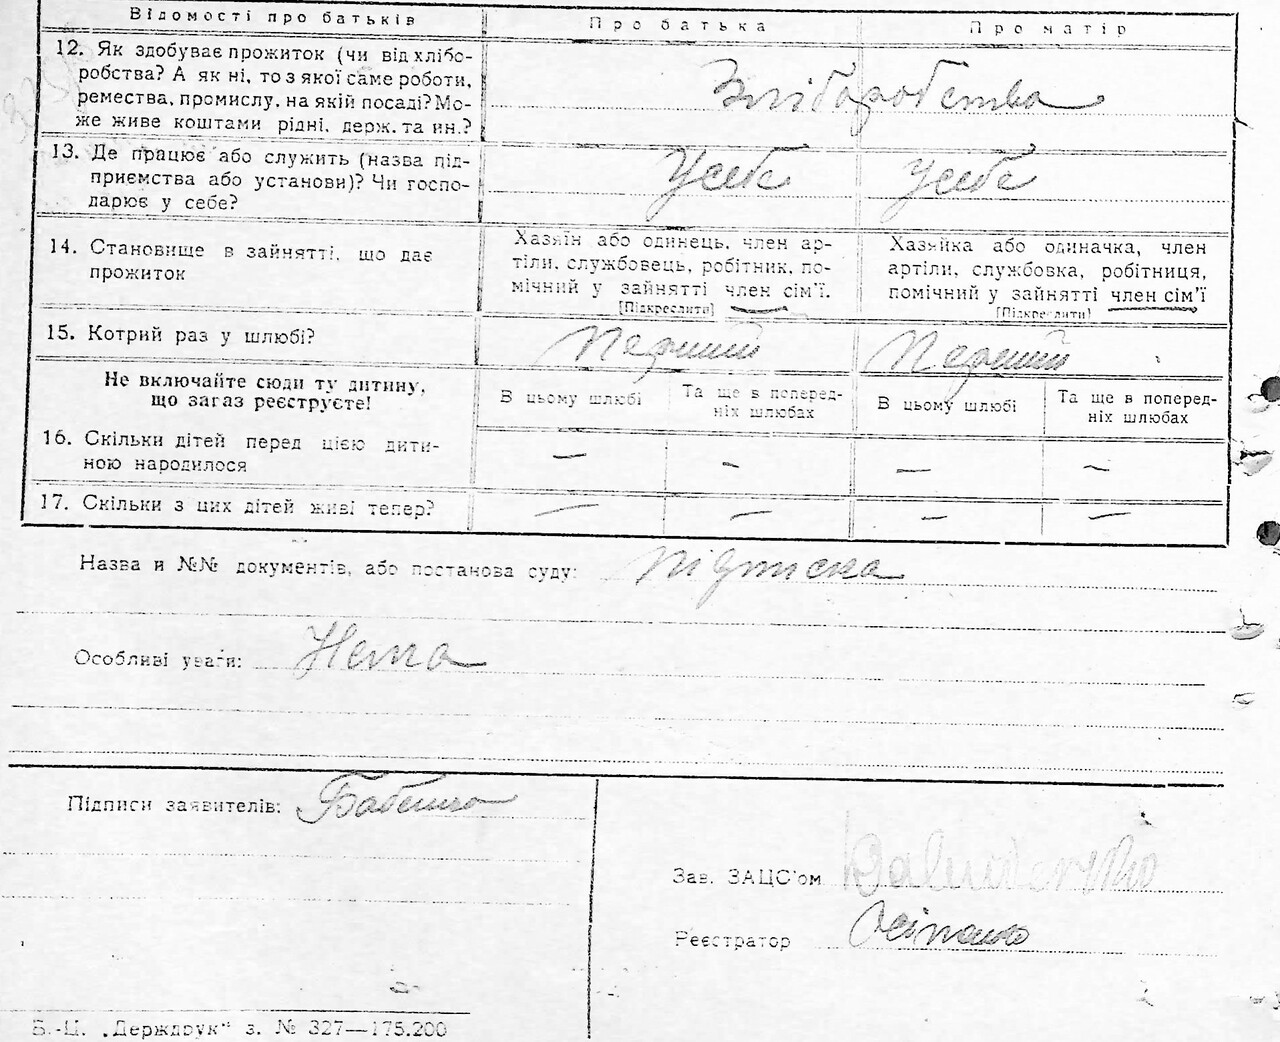 Відомості про батьків Про батька Про матір
12. Як здобуває прожиток (чи від хлібо-
робства? А як ні, то з якої саме роботи,
ремества, промислу, на якій посаді? Мо-
же живе коштами рідні, держ. та ин.?
Хліборобство
13. Де працює або служить (назва під-
приємства або установи)? Чи госпо-
дарює у себе?
Усебе Усебе
14. Становище в зайнятті, що дає
прожиток
Хазяїн або одинець, член ар-
тіли, службовець, робітник, по-
мічний у зайнятті член сім'ї.
[Підкреслити]
Хазяйка або одиначка, член
артіли, службовка, робітниця,
помічний у зайнятті член сім'ї
[Підкреслити]
15. Котрий раз у шлюбі? Перший Перший
Не включайте сюди ту дитину,
що загаз реєструєте!
В цьому шлюбі
Та ще в поперед-
ніх шлюбах
В цьому шлюбі
Та ще в поперед-
ніх шлюбах
16. Скільки дітей перед цією дити-
ною народилося
— — — —
17. Скільки з цих дітей живі тепер? — — — —
Назва и №№ документів, або постанова суду: підписка
Особливі уваги: Нема
Підписи заявителів:
Зав. ЗАЦС'ом
Реєстратор
Б.-Ц. „Держдрук" з. № 327—175.200